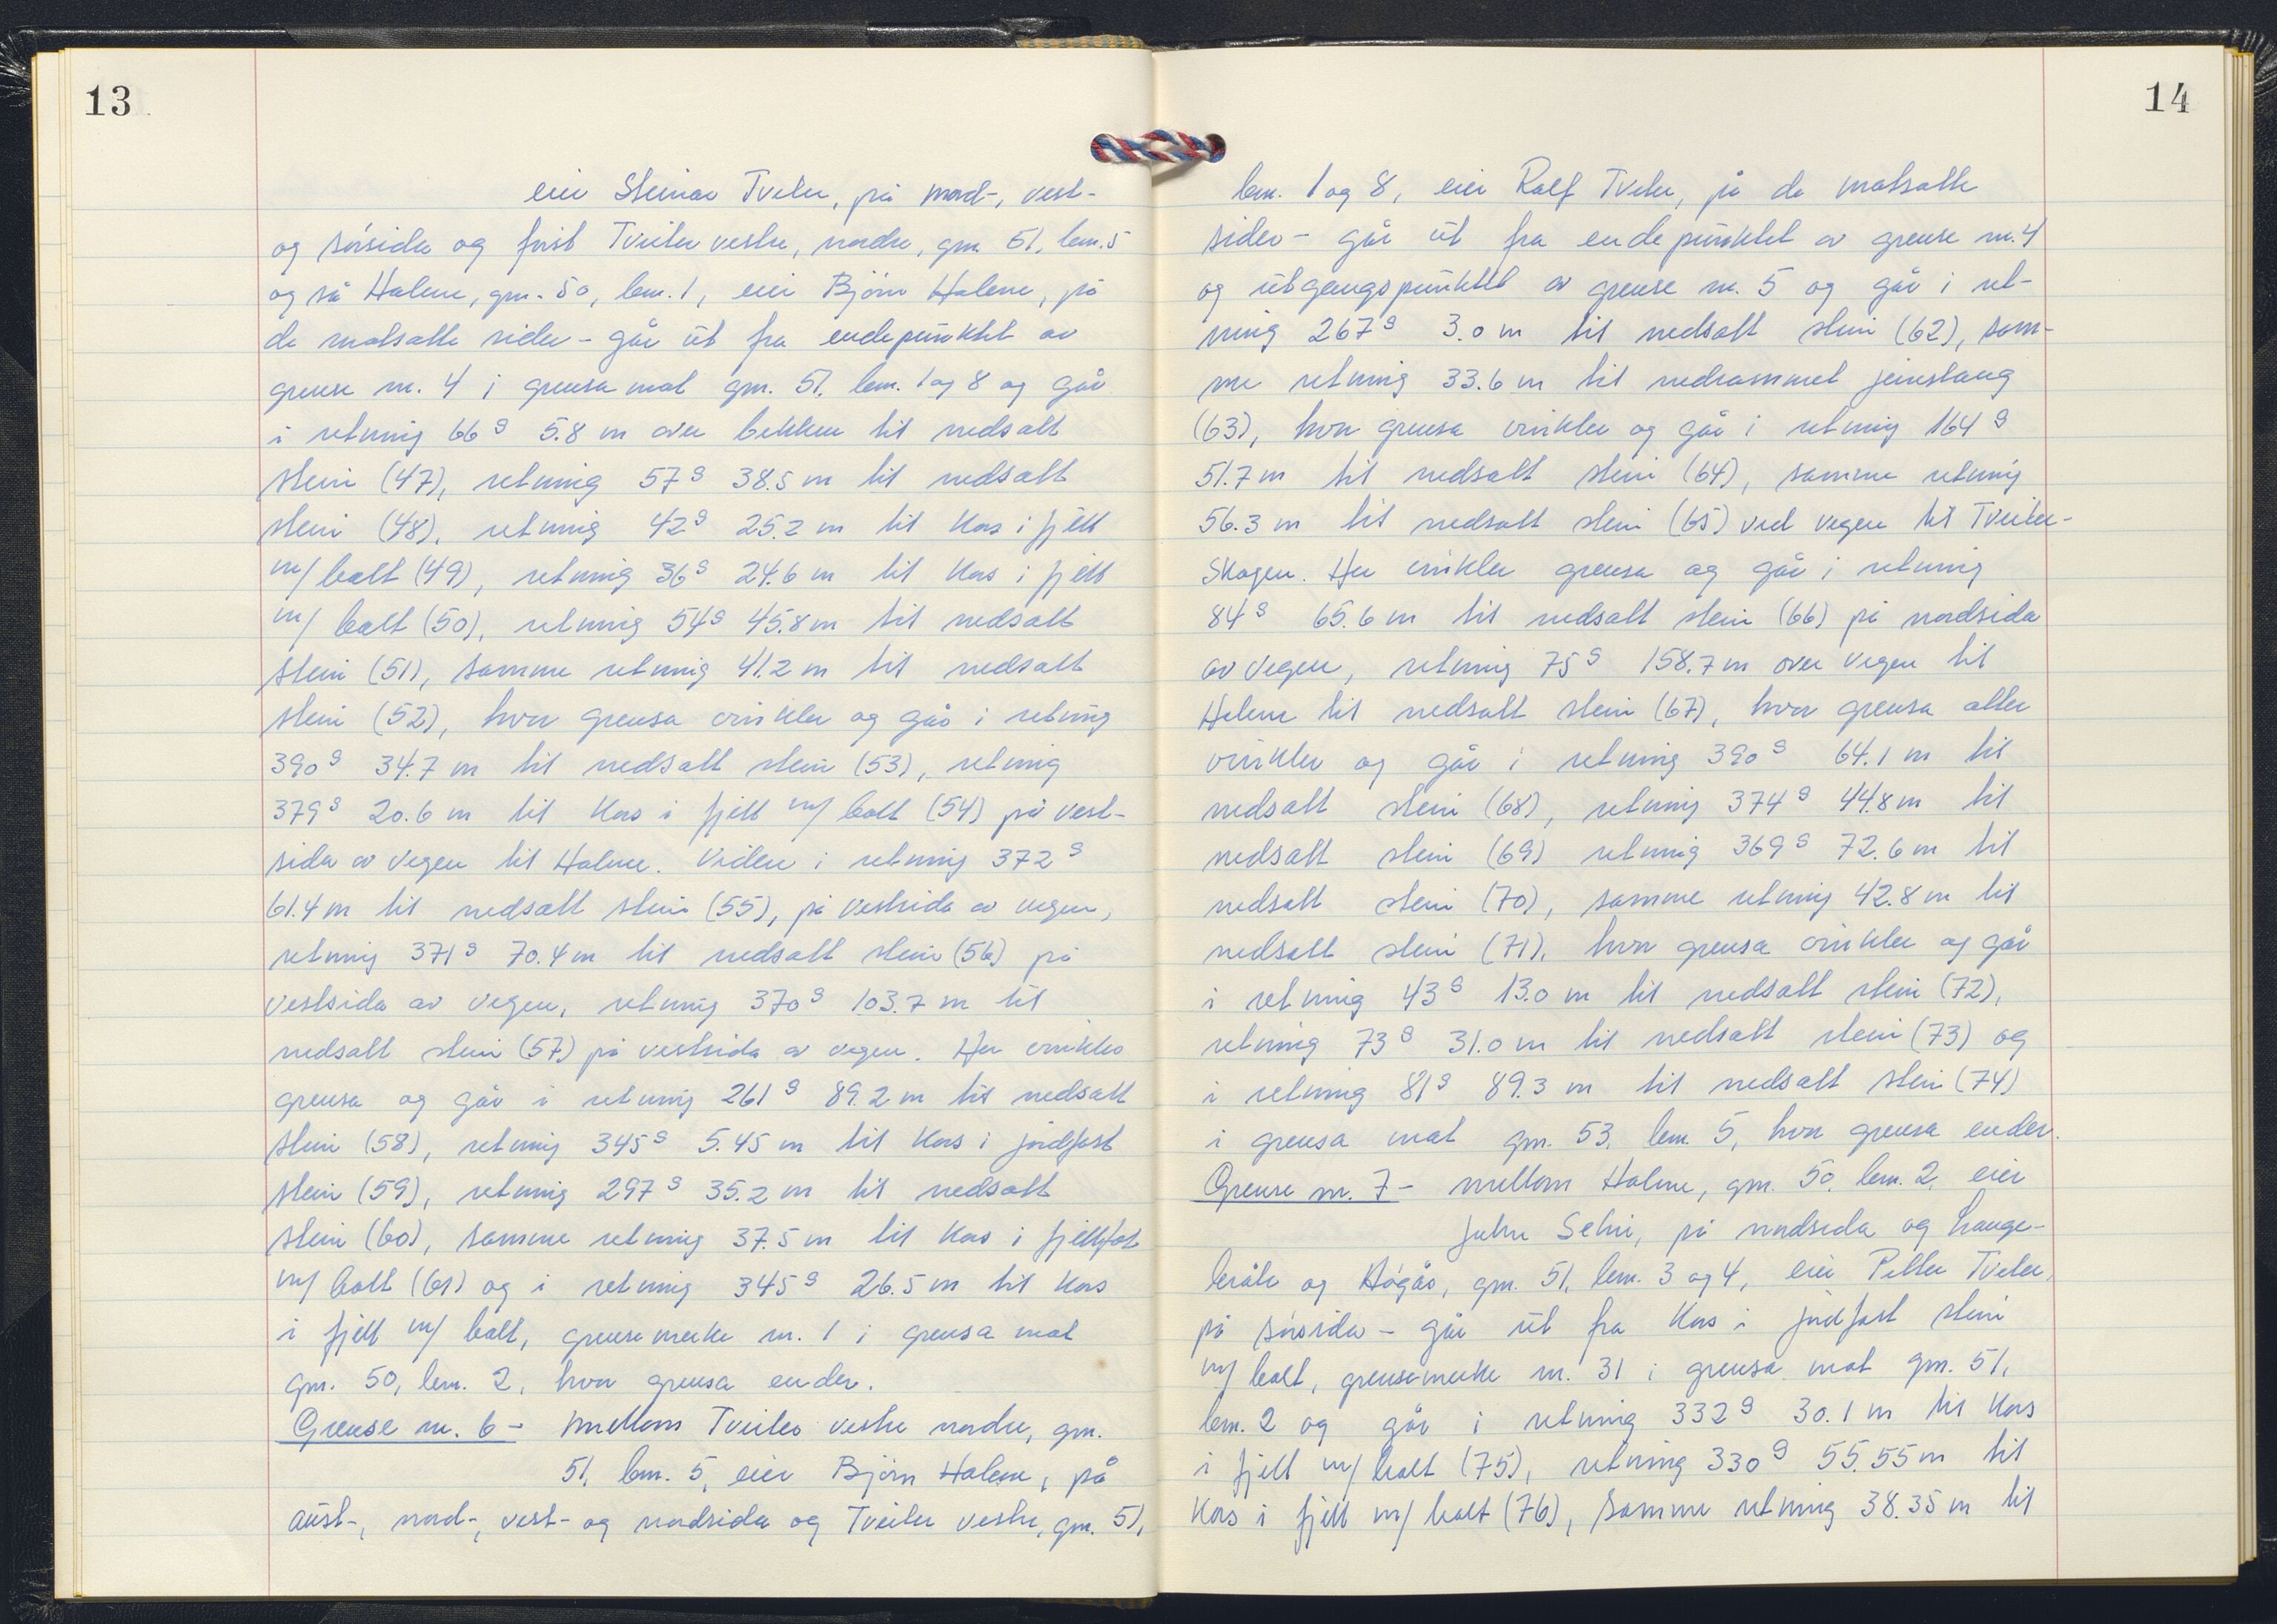 13
eier Steinar Tveter, på nord-, vest-
og sørsida og først Tveiter vestre, nordre, gnr. 51, bnr. 5
og så Halene, gnr. 50, bnr. 1, eier Bjørn Halene, på
de motsatte sider - går ut fra endepunktet av
grense nr. 4 i grensa mot gnr. 51, bnr. 1 og 8 og går
i retning 66 g 5.8 m over bekken til nedsatt
stein (47), retning 57 g 38.5 m til nedsatt
stein (48), retning 42 g 25.2 m til kors i fjell
m/ bolt (49), retning 36 g 24.6 m til kors i fjell
m/ bolt (50), retning 54 g 45.8 m til nedsatt
stein (51), samme retning 41.2 m til nedsatt
stein (52), hvor grensa vinkler og går i retning
390 g 34.7 m til nedsatt stein (53), retning
379 g 20.6 m til kors i fjell m/ bolt (54) på vest-
sida av vegen til Halene. Videre i retning 372 g
61.4 m til nedsatt stein (55), på vestsida av vegen,
retning 371 g 70.4 m til nedsatt stein (56) på
vestsida av vegen, retning 370 g 103.7 m til
nedsatt stein (57) på vestsida av vegen. Her vinkler
grensa og går i retning 261 g 89.2 m til nedsatt
stein (58), retning 345 g 5.45 m til kors i jordfast
stein (59), retning 297 g 35.2 m til nedsatt
stein (60), samme retning 37.5 m til kors i fjellfot
m/ bolt (61) og i retning 345 g 26.5 m til kors
i fjell m/ bolt, grensemerke nr. 1 i grensa mot
gnr. 50, bnr. 2, hvor grensa ender.
Grense nr. 6 - mellom Tveiter vestre nordre, gnr.
51, bnr. 5, eier Bjørn Halene, på
aust-, nord-, vest- og nordsida og Tveiter vestre, gnr. 51,
14
bnr. 1 og 8, eier Ralf Tveter, på de motsatte
sider - går ut fra endepunktet av grense nr. 4
og utgangspunktet av grense nr. 5 og går i ret-
ning 267 g 3.0 m til nedsatt stein (62), sam-
me retning 33.6 m til nedrammet jernstang
(63), hvor grensa vinkler og går i retning 164 g
51.7 m til nedsatt stein (64), samme retning
56.3 m til nedsatt stein (65) ved vegen til Tveiter-
skogen. Her vinkler grensa og går i retning
84 g 65.6 m til nedsatt stein (66) på nordsida
av vegen, retning 75 g 158.7 m over vegen til
Halene til nedsatt stein (67), hvor grensa atter
vinkler og går i retning 390 g 64.1 m til
nedsatt stein (68), retning 374 g 44.8 m til
nedsatt stein (69) retning 369 g 72.6 m til
nedsatt stein (70), samme retning 42.8 m til
nedsatt stein (71), hvor grensa vinkler og går
i retning 43 g 13.0 m til nedsatt stein (72),
retning 73 g 31.0 m til nedsatt stein (73) og
i retning 81 g 89.3 m til nedsatt stein (74)
i grensa mot gnr. 53, bnr. 5, hvor grensa ender.
Grense nr. 7 - mellom Halene, gnr. 50, bnr. 2, eier
på nordsida og Hauge-
bråte og Høgås, gnr. 51, bnr. 3 og 4, eier Petter Tveter,
på sørsida - går ut fra kors i jordfast stein
m/ bolt, grensemerke nr. 31 i grensa mot gnr. 51,
bnr. 2 og går i retning 332 g 30.1 m til kors
i fjell m/ bolt (75), retning 330 g 55.55 m til
kors i fjell m/ bolt (76), samme retning 38.35 m til